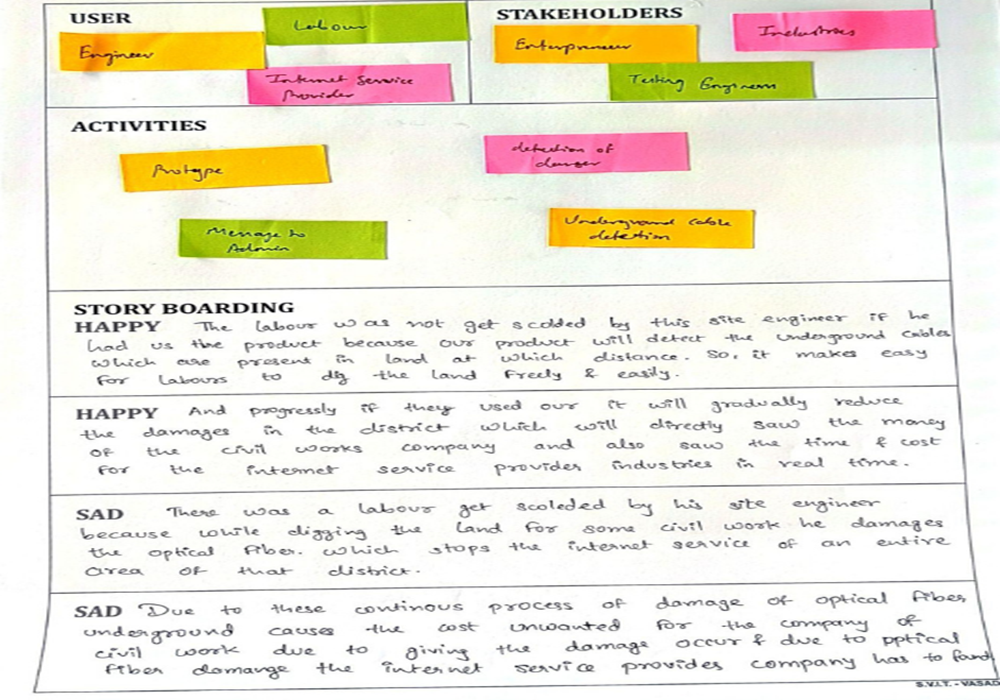 USER
Labour
Engineer
Internet Service
Provider
STAKEHOLDERS
Industries
Enterpreneer
Testing Engineers
ACTIVITIES
Protype
detection of
danger
Message to
Admin
Underground cable
detection
STORY BOARDING
HAPPY The labour was not get scolded by this site engineer if he
had us the product because our product will detect the underground cables
which are present in land at which distance. So, it makes easy
for labours to dig the land freely & easily.
HAPPY And progressly if they used our it will gradually reduce
the damages in the district which will directly saw the money
of the civil works company and also saw the time & cost
for the internet service provider industries in real time.
SAD There was a labour get scoleded by his site engineer
because while digging the land for some civil work he damages
the optical fiber. which stops the internet service of an entire
area of that district.
SAD Due to these continous process of damage of optical fiber
underground causes the cost unwanted for the company of
civil work due to giving the damage occur & due to pptical
fiber damange the internet service provides company has to
S.V.I.T. - VASAD